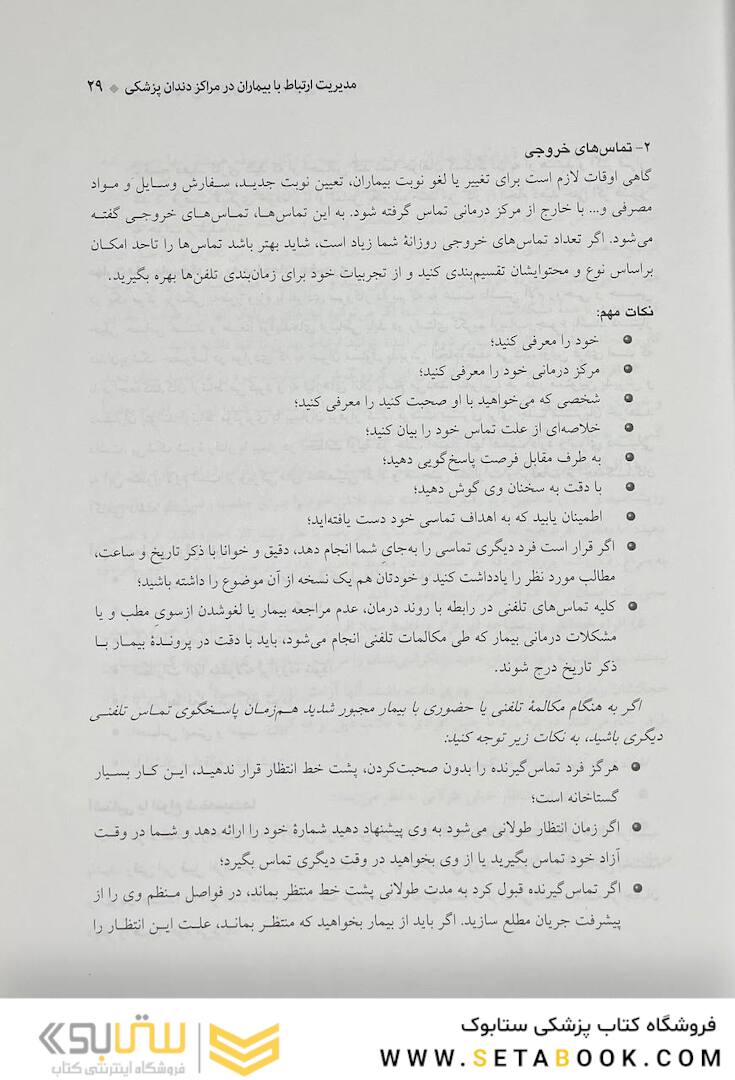 مدیریت ارتباط با بیماران در مراکز دندان پزشکی ◆ ۲۹
۲- تماس‌های خروجی
گاهی اوقات لازم است برای تغییر یا لغو نوبت بیماران، تعیین نوبت جدید، سفارش وسایل و مواد
مصرفی و... با خارج از مرکز درمانی تماس گرفته شود. به این تماس‌ها، تماس‌های خروجی گفته
می‌شود. اگر تعداد تماس‌های خروجی روزانهٔ شما زیاد است، شاید بهتر باشد تماس‌ها را تاحد امکان
براساس نوع و محتوایشان تقسیم‌بندی کنید و از تجربیات خود برای زمان‌بندی تلفن‌ها بهره بگیرید.
نکات مهم:
● خود را معرفی کنید؛
● مرکز درمانی خود را معرفی کنید؛
● شخصی که می‌خواهید با او صحبت کنید را معرفی کنید؛
● خلاصه‌ای از علت تماس خود را بیان کنید؛
● به طرف مقابل فرصت پاسخ‌گویی دهید؛
● با دقت به سخنان وی گوش دهید؛
● اطمینان یابید که به اهداف تماسی خود دست یافته‌اید؛
● اگر قرار است فرد دیگری تماسی را به‌جایِ شما انجام دهد، دقیق و خوانا با ذکر تاریخ و ساعت،
مطالب مورد نظر را یادداشت کنید و خودتان هم یک نسخه از آن موضوع را داشته باشید؛
● کلیه تماس‌های تلفنی در رابطه با روند درمان، عدم مراجعه بیمار یا لغوشدن ازسویِ مطب و یا
مشکلات درمانی بیمار که طی مکالمات تلفنی انجام می‌شود، باید با دقت در پروندهٔ بیمار با
ذکر تاریخ درج شوند.
اگر به هنگام مکالمهٔ تلفنی یا حضوری با بیمار مجبور شدید هم‌زمان پاسخگوی تماس تلفنی
دیگری باشید، به نکات زیر توجه کنید:
● هرگز فرد تماس‌گیرنده را بدون صحبت‌کردن، پشت خط انتظار قرار ندهید، این کار بسیار
گستاخانه است؛
● اگر زمان انتظار طولانی می‌شود به وی پیشنهاد دهید شمارهٔ خود را ارائه دهد و شما در وقت
آزاد خود تماس بگیرید یا از وی بخواهید در وقت دیگری تماس بگیرد؛
● اگر تماس‌گیرنده قبول کرد به مدت طولانی پشت خط منتظر بماند، در فواصل منظم وی را از
پیشرفت جریان مطلع سازید. اگر باید از بیمار بخواهید که منتظر بماند، علت این انتظار را
فروشگاه کتاب پزشکی ستابوک
WWW.SETABOOK.COM
ستابوک
فروشگاه اینترنتی کتاب